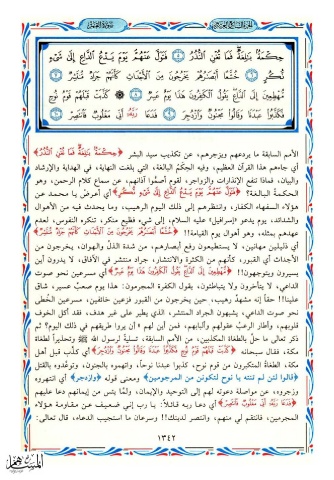 حِكْمَةٌ بَالِغَةٌ فَمَا تُغْنِ النُّذُرُ ۝ فَتَوَلَّ عَنْهُمْ يَوْمَ يَدْعُ الدَّاعِ إِلَى شَيْءٍ
نُكُرٍ ۝ خُشَّعًا أَبْصَارُهُمْ يَخْرُجُونَ مِنَ الْأَجْدَاثِ كَأَنَّهُمْ جَرَادٌ مُنْتَشِرٌ ۝
مُهْطِعِينَ إِلَى الدَّاعِ يَقُولُ الْكَافِرُونَ هَذَا يَوْمٌ عَسِرٌ ۝ كَذَّبَتْ قَبْلَهُمْ قَوْمُ نُوحٍ
فَكَذَّبُوا عَبْدَنَا وَقَالُوا مَجْنُونٌ وَازْدُجِرَ ۝ فَدَعَا رَبَّهُ أَنِّي مَغْلُوبٌ فَانْتَصِرْ ۝
الأمم السابقة ما يردعهم ويزجرهم، عن تكذيب سيد البشر ﴿حِكْمَةٌ بَالِغَةٌ فَمَا تُغْنِ النُّذُرُ﴾
أي جاءهم هذا القرآن العظيم، وفيه الحكم البالغة، التي بلغت النهاية، في الهداية والإرشاد
والبيان، فماذا تنفع الإنذارات والزواجر، لقوم أصموا آذانهم، عن سماع كلام الرحمن، وهو
الحكمة البالغة؟ ﴿فَتَوَلَّ عَنْهُمْ يَوْمَ يَدْعُ الدَّاعِ إِلَى شَيْءٍ نُكُرٍ﴾ أي أعرض يا محمد عن
هؤلاء السفهاء الكفار، وانتظرهم إلى ذلك اليوم الرهيب، وما يحدث فيه من الأهوال
والشدائد، يوم يدعو «إسرافيل» عليه السلام، إلى شيء فظيع منكر، تنكره النفوس، لعدم
عهدهم بمثله، وهو أهوال يوم القيامة!! ﴿خُشَّعًا أَبْصَارُهُمْ يَخْرُجُونَ مِنَ الْأَجْدَاثِ كَأَنَّهُمْ جَرَادٌ مُنْتَشِرٌ﴾
أي ذليلين مهانين، لا يستطيعون رفع أبصارهم، من شدة الذل والهوان، يخرجون من
الأجداث أي القبور، كأنهم من الكثرة والانتشار، جراد منتشر في الآفاق، لا يدرون أين
يسيرون ويتوجهون!! ﴿مُهْطِعِينَ إِلَى الدَّاعِ يَقُولُ الْكَافِرُونَ هَذَا يَوْمٌ عَسِرٌ﴾ أي مسرعين نحو صوت
الداعي، لا يتأخرون ولا يتباطئون، يقول الكفرة المجرمون: هذا يوم صعب عسير، شاق
علينا!! حقا إنه مشهد رهيب، حين يخرجون من القبور فزعين خائفين، مسرعين الخطى
نحو صوت الداعي، يشبهون الجراد المنتشر، الذي يطير على غير هدف، فقد أكل الخوف
قلوبهم، وأطار الرعب عقولهم وألبابهم، فمن أين لهم أن يروا طريقهم في ذلك اليوم؟ ثم
ذكر تعالى ما حل بالطغاة المكذبين، من الأمم السابقة، تسلية لرسول الله ﷺ وتحذيرا لطغاة
مكة، فقال سبحانه ﴿كَذَّبَتْ قَبْلَهُمْ قَوْمُ نُوحٍ فَكَذَّبُوا عَبْدَنَا وَقَالُوا مَجْنُونٌ وَازْدُجِرَ﴾ أي كذب قبل أهل
مكة، الطغاة المتكبرون من قوم نوح، كذبوا عبدنا نوحا، واتهموه بالجنون، وتوعدوه بالقتل
﴿قالوا لئن لم تنته يا نوح لتكونن من المرجومين﴾ ومعنى قوله ﴿وازدجر﴾ أي انتهروه
وزجروه، عن مواصلة دعوته لهم إلى التوحيد والإيمان، ولما يئس من إيمانهم دعا عليهم
﴿فَدَعَا رَبَّهُ أَنِّي مَغْلُوبٌ فَانْتَصِرْ﴾ أي دعا ربه قائلا: يا رب إني ضعيف عن مقاومة هؤلاء
المجرمين، فانتقم لي منهم، وانتصر لدينك!! وسرعان ما استجيب الدعاء، قال تعالى:
١٣٤٢